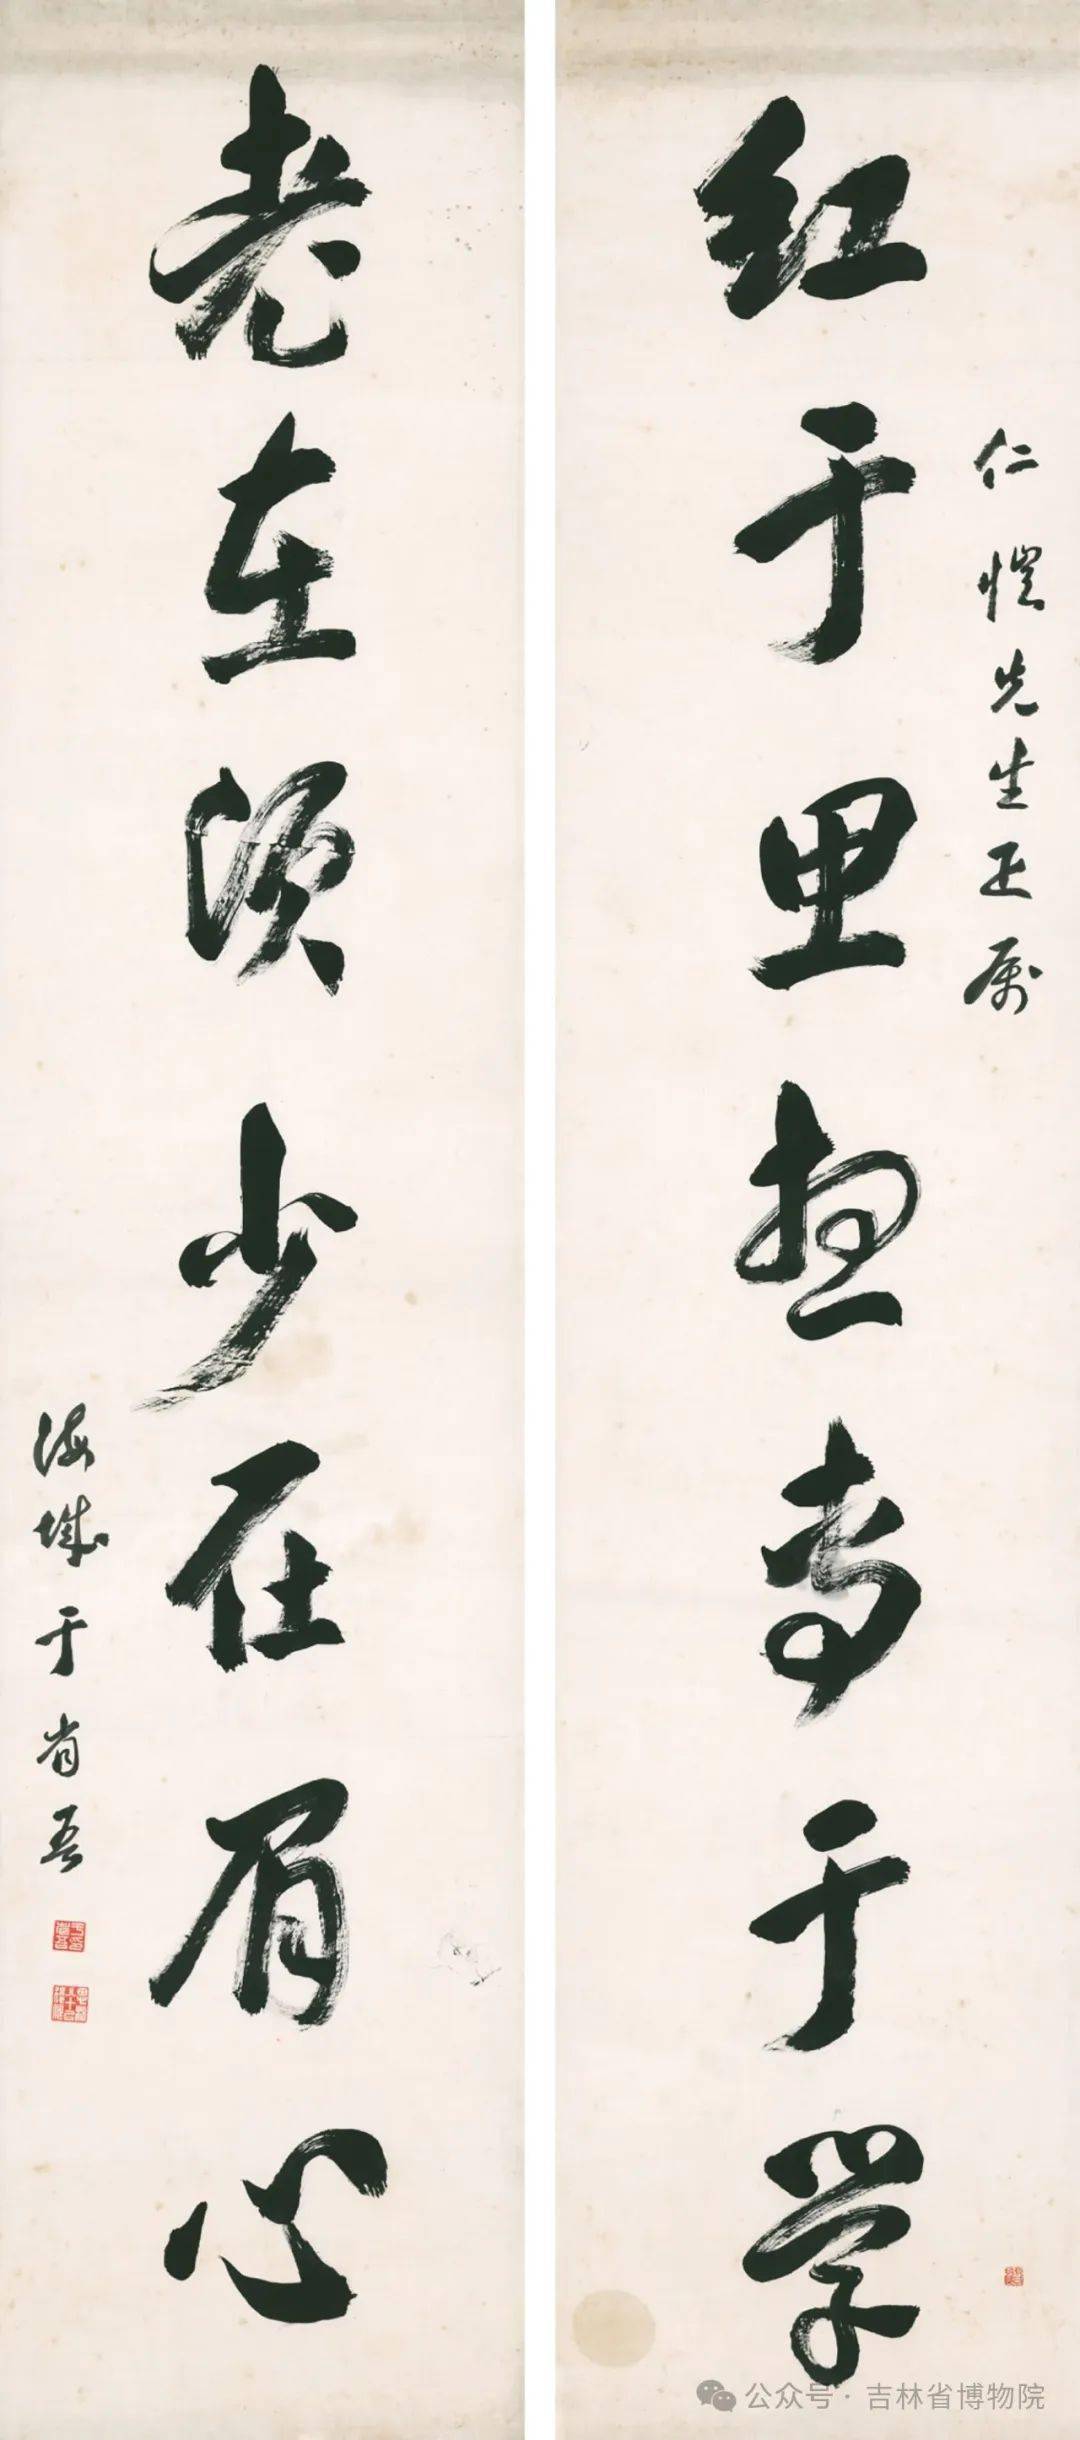 仁恺先生正属
红于里想专于学
老在须少在眉心
海城于省吾
公众号·吉林省博物院